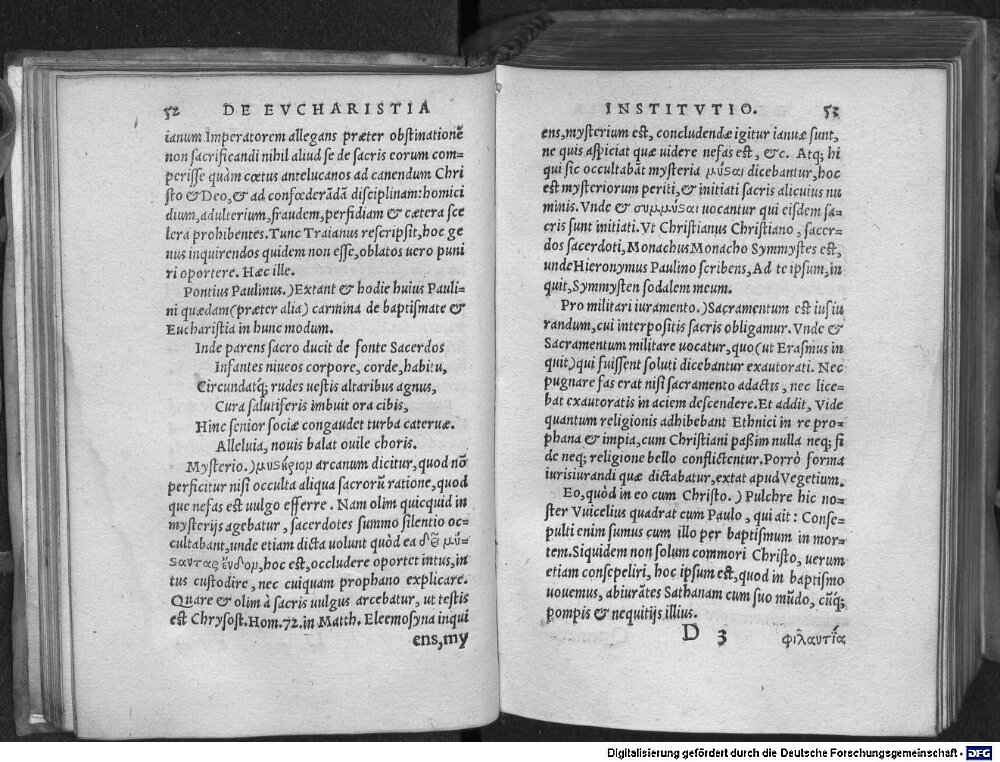 52 DE EVCHARISTIA
ianum Imperatorem allegans præter obstinationē
non sacrificandi nihil aliud se de sacris eorum com=
perisse quàm cœtus antelucanos ad canendum Chri
sto & Deo, & ad confœderādā disciplinam: homici
dium, adulterium, fraudem, perfidiam & cætera sce
lera prohibentes. Tunc Traianus rescripsit, hoc ge
nus inquirendos quidem non esse, oblatos uero puni
ri oportere. Hæc ille.
Pontius Paulinus.) Extant & hodie huius Pauli=
ni quædam (præter alia) carmina de baptismate &
Eucharistia in hunc modum.
Inde parens sacro ducit de fonte Sacerdos
Infantes niueos corpore, corde, habitu,
Circundatq; rudes uestis altaribus agnus,
Cura salutiferis imbuit ora cibis,
Hinc senior sociæ congaudet turba cateruæ.
Alleluia, nouis balat ouile choris.
Mysterio.) μυϛήριον arcanum dicitur, quod nō
perficitur nisi occulta aliqua sacrorū ratione, quod
que nefas est uulgo efferre. Nam olim quicquid in
mysterijs agebatur, sacerdotes summo silentio oc=
cultabant, unde etiam dicta uolunt quòd ea δεῖ μύ=
σαντας ἔνδον, hoc est, occludere oportet intus, in
tus custodire, nec cuiquam prophano explicare.
Quare & olim à sacris uulgus arcebatur, ut testis
est Chrysost. Hom. 72. in Matth. Eleemosyna inqui
ens, my
INSTITVTIO. 53
ens, mysterium est, concludendæ igitur ianuæ sunt,
ne quis aspiciat quæ uidere nefas est, &c. Atq; hi
qui sic occultabāt mysteria μύϛαι dicebantur, hoc
est mysteriorum periti, & initiati sacris alicuius nu
minis. Vnde & συμμύϛαι uocantur qui eisdem sa=
cris sunt initiati. Vt Christianus Christiano, sacer=
dos sacerdoti, Monachus Monacho Symmystes est,
unde Hieronymus Paulino scribens, Ad te ipsum, in
quit, Symmysten sodalem meum.
Pro militari iuramento.) Sacramentum est iusiu
randum, cui interpositis sacris obligamur. Vnde &
Sacramentum militare uocatur, quo (ut Erasmus in
quit) qui fuissent soluti dicebantur exautorati. Nec
pugnare fas erat nisi sacramento adactus, nec lice=
bat exautoratis in aciem descendere. Et addit, Vide
quantum religionis adhibebant Ethnici in re pro=
phana & impia, cum Christiani paßim nulla neq; fi
de neq; religione bello conflictentur. Porrò forma
iurisiurandi quæ dictabatur, extat apud Vegetium.
Eo, quòd in eo cum Christo.) Pulchre hic no=
ster Vuicelius quadrat cum Paulo, qui ait: Conse=
pulti enim sumus cum illo per baptismum in mor=
tem. Siquidem non solum commori Christo, uerum
etiam consepeliri, hoc ipsum est, quod in baptismo
uouemus, abiurātes Sathanam cum suo mūdo, cūq;
pompis & nequitijs illius.
D 3 φιλαυτία
Digitalisierung gefördert durch die Deutsche Forschungsgemeinschaft - DFG